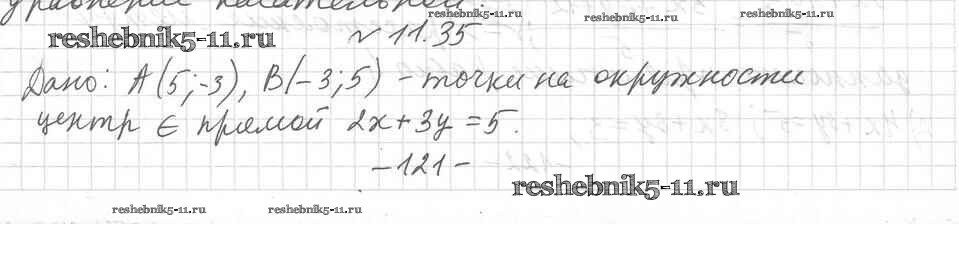 уравнение касательной.
reshebnik5-11.ru reshebnik5-11.ru reshebnik5-11.ru
reshebnik5-11.ru
№ 11.35
Дано: A(5;-3), B(-3;5) - точки на окружности
центр ∈ прямой 2x+3y=5.
-121-
reshebnik5-11.ru
reshebnik5-11.ru reshebnik5-11.ru